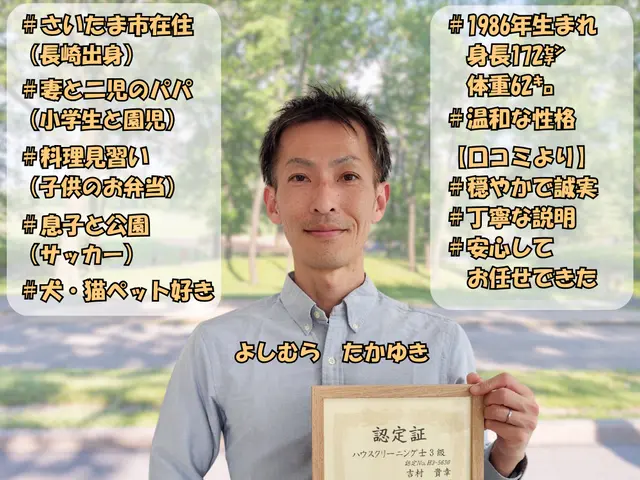 #さいたま市在住
（長崎出身）
#妻と二児のパパ
（小学生と園児）
#料理見習い
（子供のお弁当）
#息子と公園
（サッカー）
#犬・猫ペット好き
#1986年生まれ
身長172㌢
体重62㌔
#温和な性格
【口コミより】
#穏やかで誠実
#丁寧な説明
#安心して
お任せできた
よしむら たかゆき
認定証
ハウスクリーニング士3級
認定No.H3-5630
吉村 貴幸